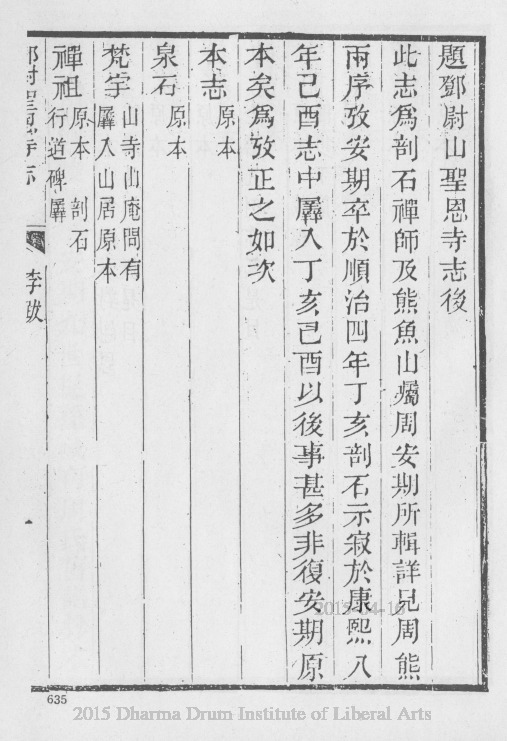 題鄧尉山聖恩寺志後
此志爲剖石禪師及熊魚山囑周安期所輯詳見周熊
兩序攷安期卒於順治四年丁亥剖石示寂於康熙八
年己酉志中羼入丁亥己酉以後事甚多非復安期原
本矣爲攷正之如次
本志 原本
泉石 原本
梵宇 山寺山庵間有
羼入山居原本
禪祖 原本 剖石
行道碑羼
鄧尉聖恩寺志
李跋
2015-04-16
635
2015 Dharma Drum Institute of Liberal Arts